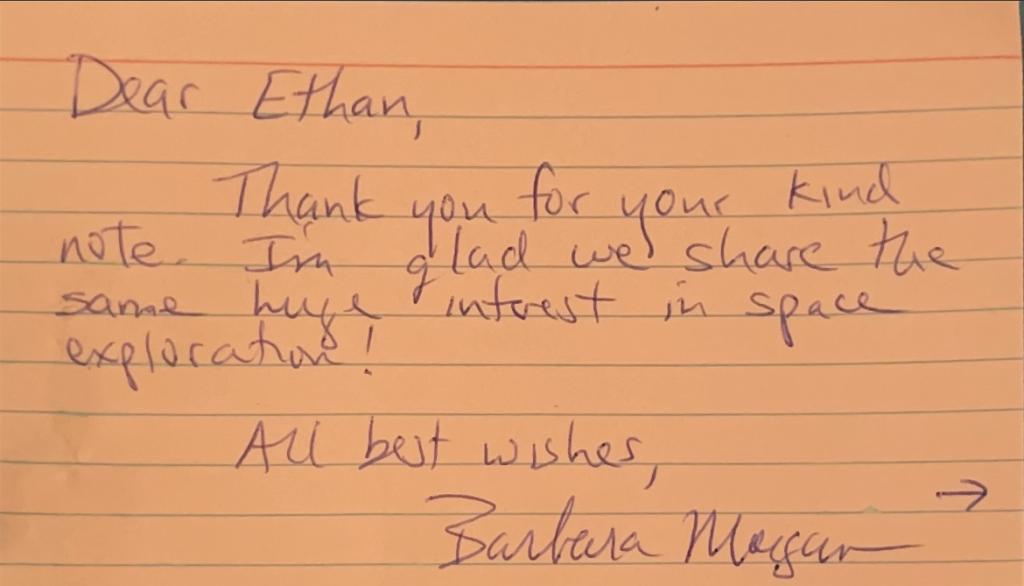 Dear Ethan,
Thank you for your kind
note. I'm glad we share the
same huge interest in space
exploration!
All best wishes,
→
Barbara Morgan